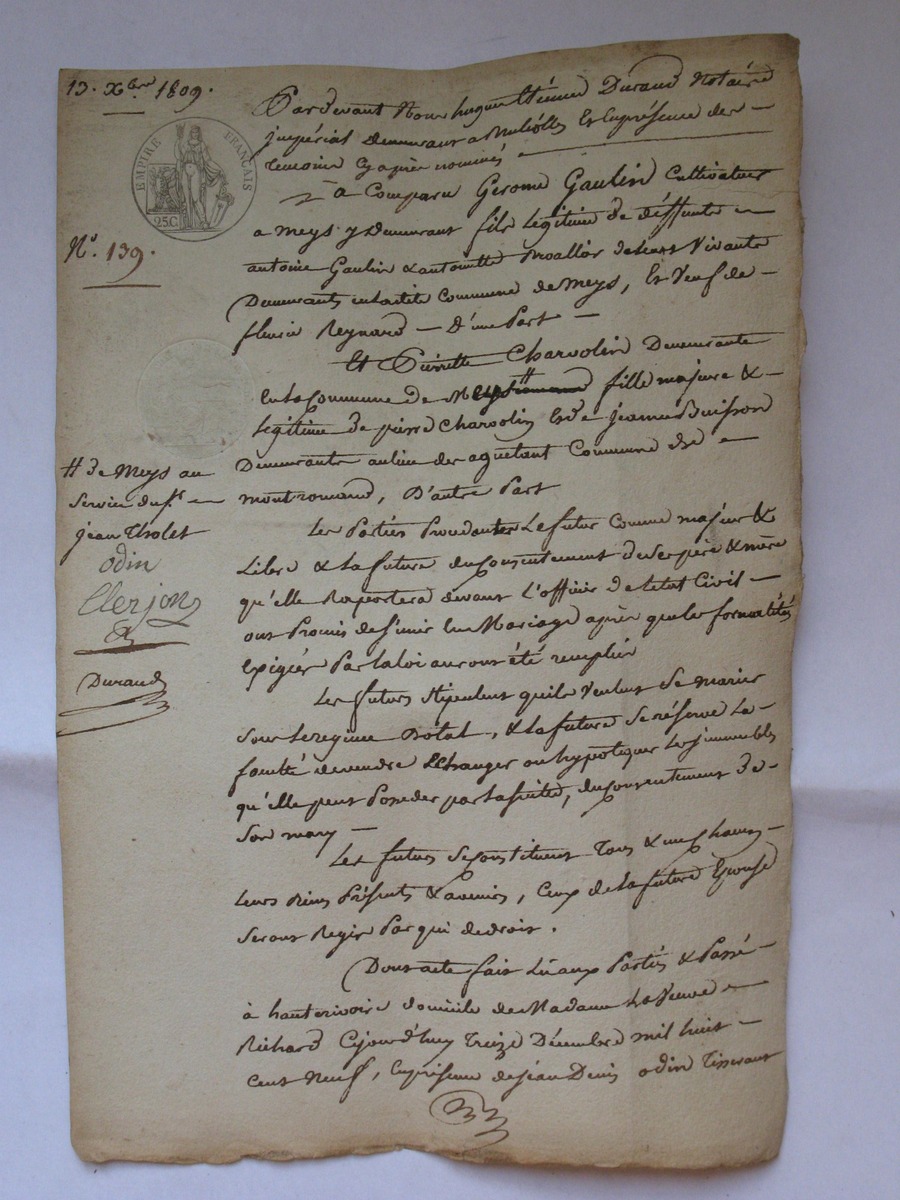 13. Xbre 1809.
EMPIRE FRANÇAIS
25 C.
N.o 139.
Pardevant Nous hugues Etienne Durand Notaire
impérial demeurant a et En présence des
temoins Cy après nommés
a Comparu Gerome Gaulin Cultivateur
a meys y Demeurant fils Legitime de deffunts
antoine Gaulin & antoinette de leurs Vivants
Demeurants en la dite Commune de Meys, Et Veuf de
fleurie Reynard — D'une Part —
Et Pierrette Charvolin Demeurante
En la Commune de # fille majeure &
Legitime de pierre Charvolin Et de jeanne Buisson
Demeurants au lieu de Commune de
montromand, D'autre Part
# de Meys au
Service du Sr
jean Tholet
odin
Clerjon
Durand
Les Parties Procedantes Le futur Comme majeur &
Libre & La future du Consentement de Ses père & mère
qu'elle Raportera devant L'officier de letat Civil —
ont Promis de S'unir En Mariage après que les formalités
Exigées Par la loi auront été remplies
Les futurs Stipulent qu'ils Veulent Se marier
Sous Le regime Dotal, & La future Se réserve La
faculté de vendre Echanger ou hypotequer Les immeubles
qu'elle peut Posseder par la Suite, du Consentement de
Son mary —
Les futurs Se Constituent Tous & un Chacun
Leurs Biens Présents & avenirs, Ceux de La future Epouse
Seront Regis Par qui de droit.
Dont acte fait Lû aux Parties & Passé
à hauterivoire domicile de Madame La Veuve
Richard Cejourd'huy Treize Décembre mil huit
Cent Neuf, En présence de jean Denis odin Tisserant